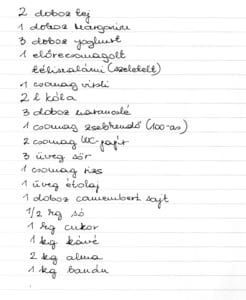 2 doboz tej
1 doboz margarin
3 doboz yoghurt
1 előrecsomagolt
téliszalámi (szeletelt)
1 csomag virsli
2 l kóla
3 doboz narancslé
1 csomag zsebkendő (100-as)
2 csomag WC-papír
3 üveg sör
1 csomag rizs
1 üveg étolaj
1 doboz camembert sajt
1/2 kg só
1 kg cukor
1 kg kávé
2 kg alma
1 kg banán